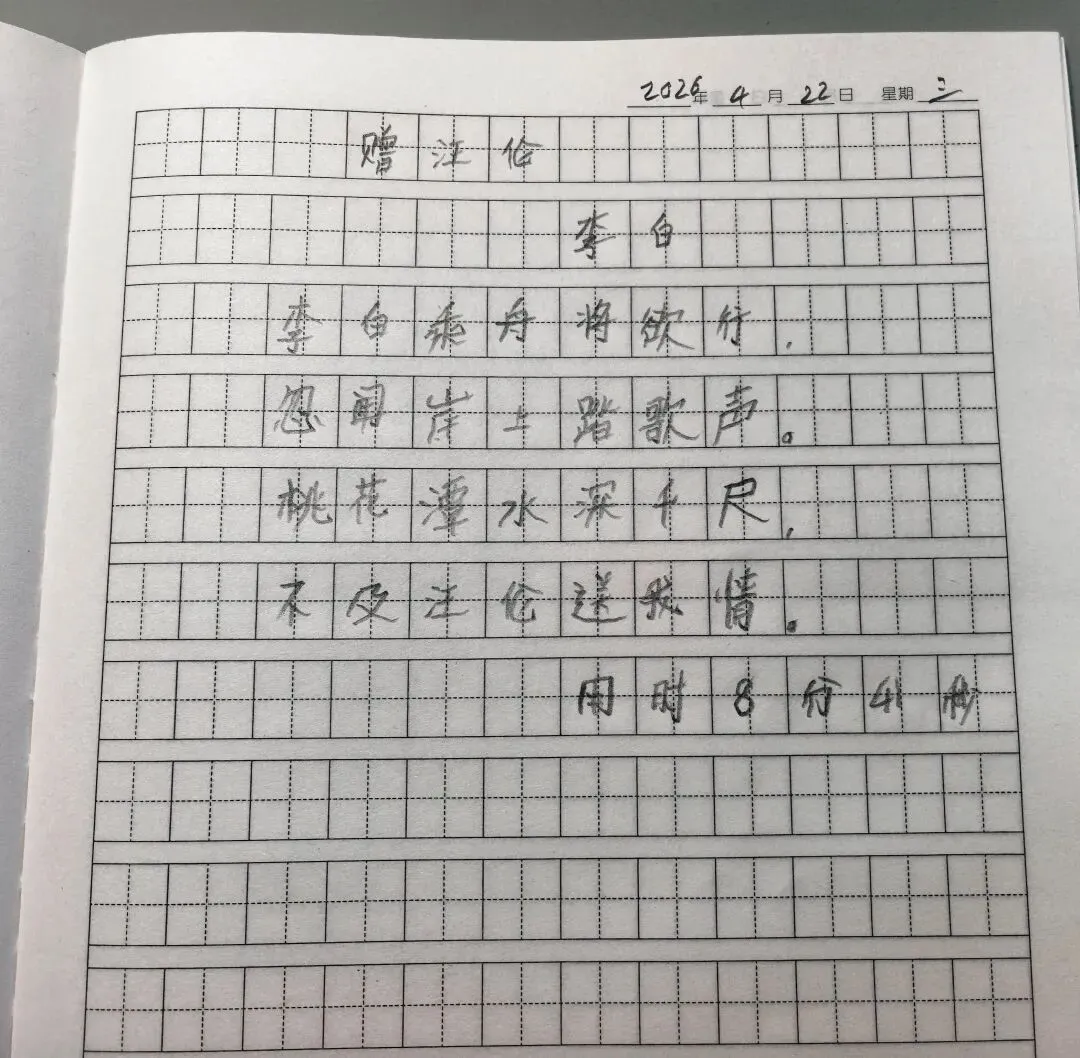 2026年 4月 22日 星期三
赠汪伦
李白
李白乘舟将欲行,
忽闻岸上踏歌声。
桃花潭水深千尺,
不及汪伦送我情。
用时8分41秒